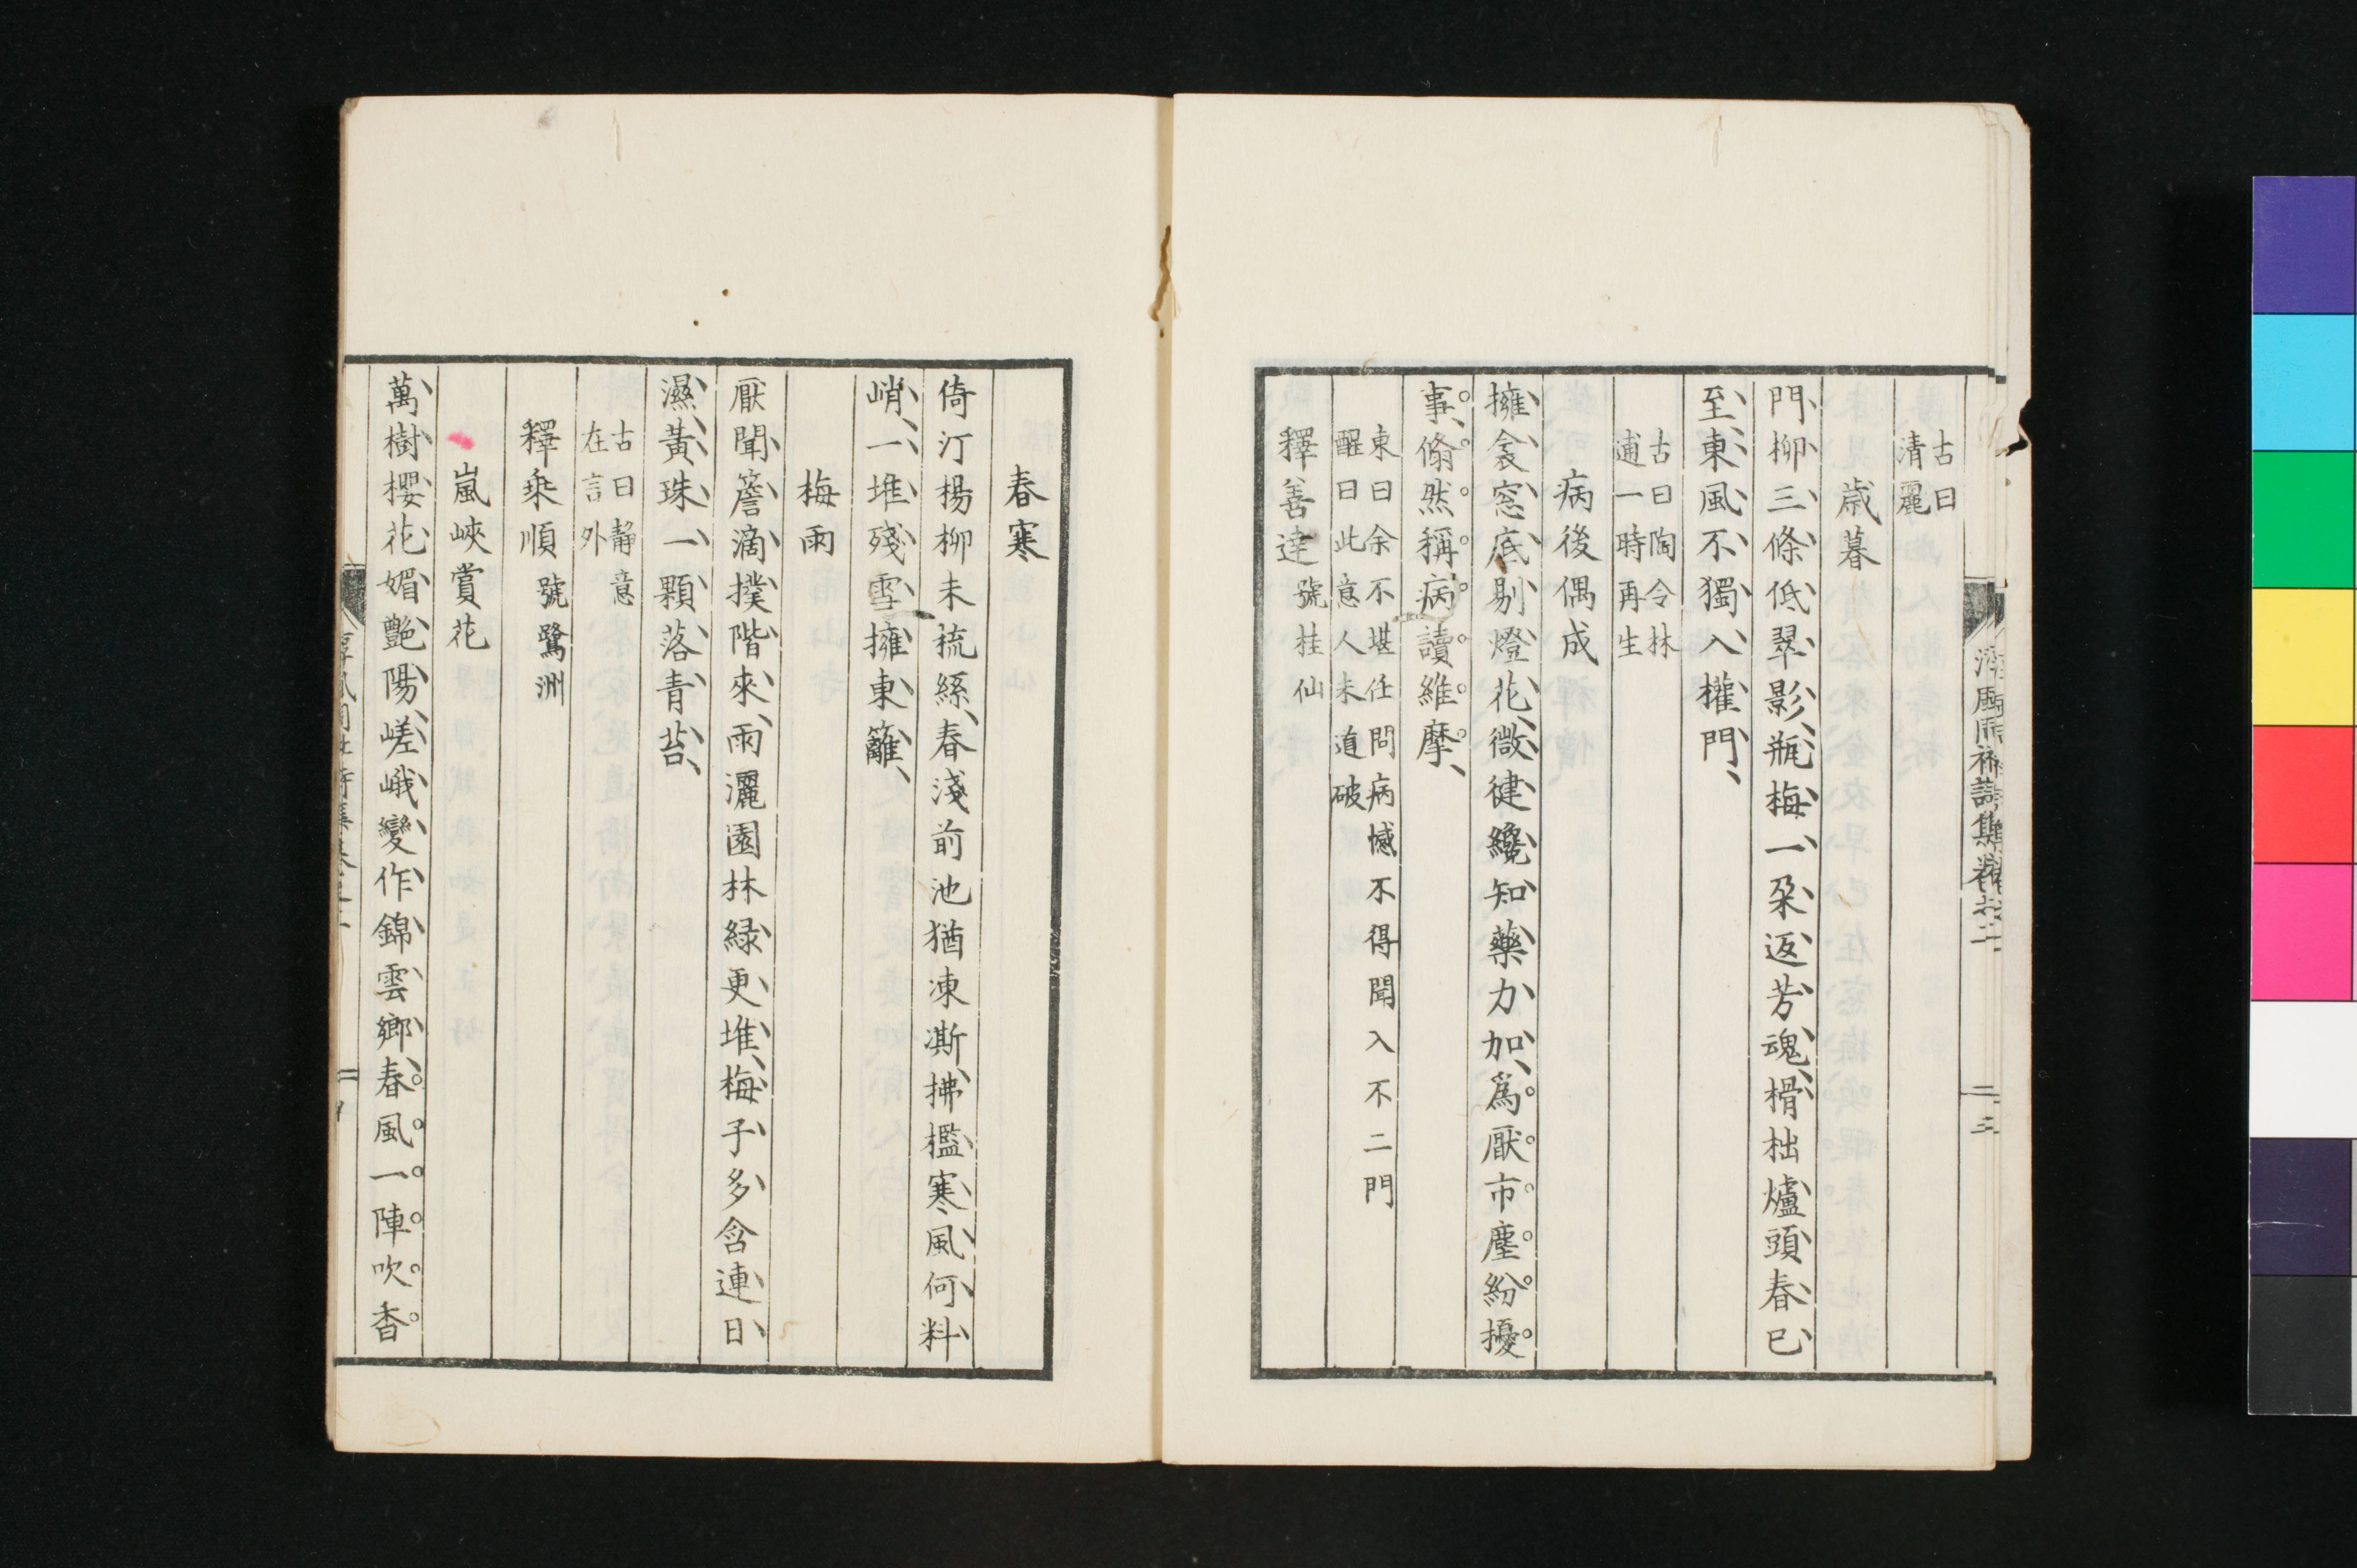 古曰
清麗
歲暮
門柳三條低翠影、瓶梅一朶返芳魂、榾柮爐頭春已
至、東風不獨入權門、
古曰陶令林
逋一時再生
病後偶成
擁衾窓底剔燈花、微健纔知藥力加、爲厭市塵紛擾
事、翛然稱病讀維摩、
東曰余不堪任問病憾不得聞入不二門
醒曰此意人未道破
釋善達 號桂仙
春寒
倚汀楊柳未梳絲、春淺前池猶凍澌、拂檻寒風何料
峭、一堆殘雪擁東籬、
梅雨
厭聞簷滴撲階來、雨灑園林綠更堆、梅子多含連日
濕、黃珠一顆落青苔、
古曰靜意
在言外
釋乘順 號鷺洲
嵐峽賞花
萬樹櫻花媚艶陽、嵯峨變作錦雲鄉、春風一陣吹香